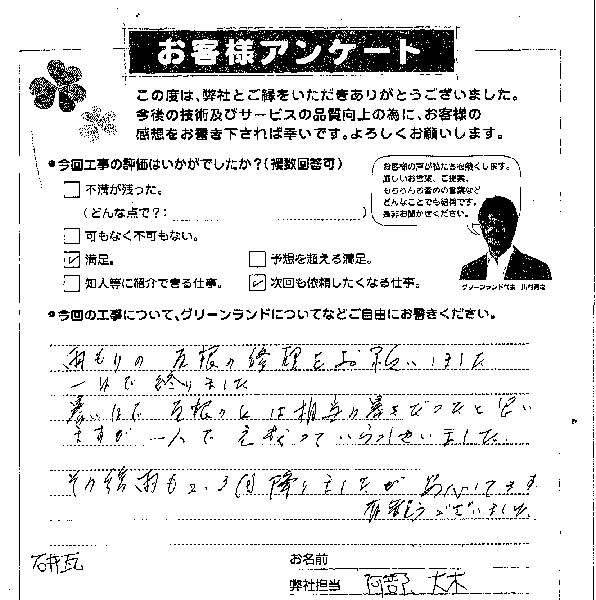 お客様アンケート
この度は、弊社とご縁をいただきありがとうございました。
今後の技術及びサービスの品質向上の為に、お客様の
感想をお書き下されば幸いです。よろしくお願いします。
●今回工事の評価はいかがでしたか?(複数回答可)
不満が残った。
(どんな点で?: )
可もなく不可もない。
満足。
予想を超える満足。
知人等に紹介できる仕事。
次回も依頼したくなる仕事。
お客様の声が私たちを熱くします。
厳しいお言葉、ご提案、
もちろんお褒めの言葉など
どんなことでも結構です。
是非お聞かせください。
グリーンランド代表
●今回の工事について、グリーンランドについてなどご自由にお書きください。
雨もりの 屋根の修理をお願いしました
一日で 終りました
暑い日で 屋根の上は相当の暑さだったと思い
ますが 一人で がんばっていらっしゃいました。
その後雨も2.3回降りましたが 安心してます
有難うございました。
石井瓦
お名前
弊社担当 阿部、大木